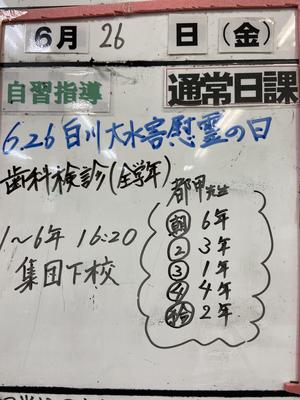 6月 26 日(金)
自習指導 通常日課
6.26 白川大水害慰霊の日
歯科検診(全学年)
1〜6年 16:20
集団下校
都甲先生
朝 6年
② 3年
③ 1年
④ 4年
2年